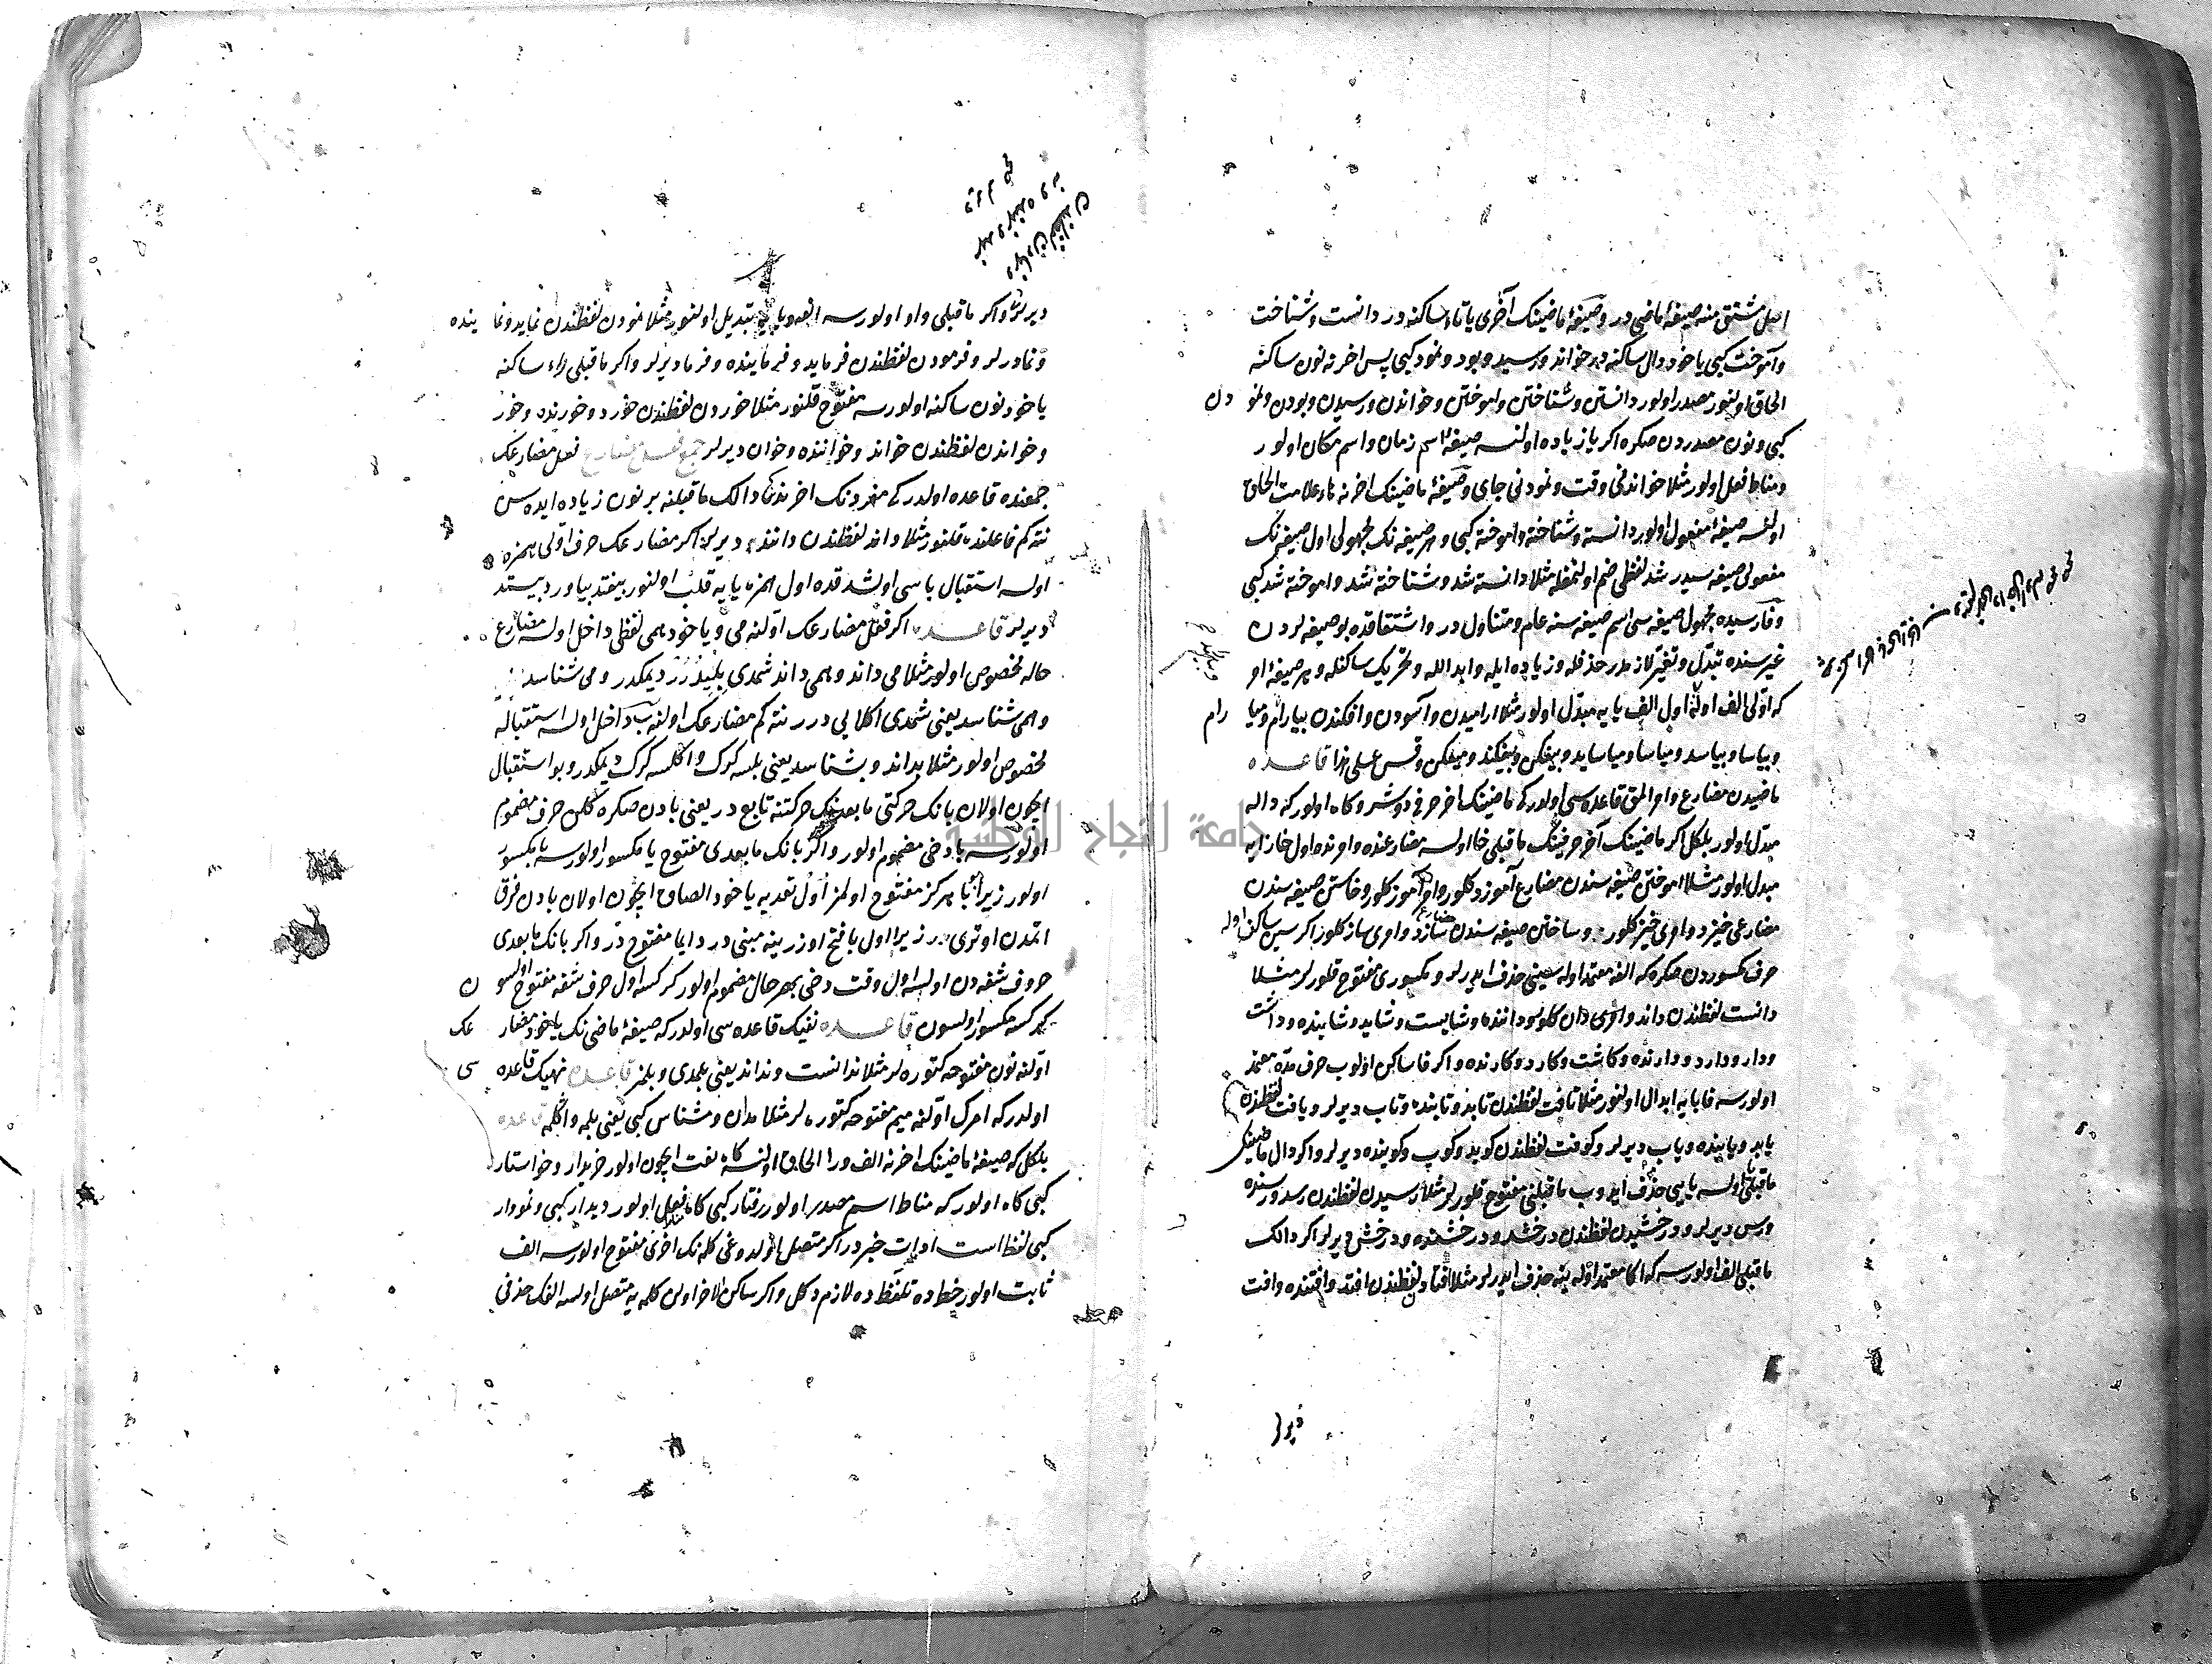 اصل مشتق منه صيغهٔ ماضی در و صيغهٔ ماضينك آخری يا تاء ساكنه در دانست و شناخت
و آموخت كبی يا خود دال ساكنه در خواند و رسيد و بود و نمود كبی پس اخرنه نون ساكنه
الحاق اولنور مصدر اولور دانستن و شناختن و اموختن و خواندن و رسيدن و بودن و نمودن
كبی و نون مصدردن صكره اكر يا زياده اولنسه صيغهٔ اسم زمان و اسم مكان اولور
و مناط فعل اولور مثلا خواندنی وقت و نمودنی جای و صيغهٔ ماضينك اخرنه هاء علامت الحاق
اولنسه صيغهٔ مفعول اولور دانسته و شناخته و اموخته كبی و هر صيغه نك مجهولی اول صيغه نك
مفعولی صيغه سيدر شد لفظی ضم اولنمغله مثلا دانسته شد و شناخته شد و اموخته شد كبی
غيرسنده تبدل و تغير لازمدر حذفله و زياده ايله و ابدالله و تحريك ساكنله و هر صيغهٔ امر
كه اولی الف اوله اول الف يايه مبدل اولور مثلا اراميدن و آسودن و افكندن بيارام و ميارام
و بياسا و بياسد و مياسا و مياسايد و بيفكن و بيفكند و ميفكن و قس علی هذا قاعده
ماضيدن مضارع و امر المق قاعده سی اولدر كه ماضينك اخر حرفی دوشر و كاه اولور كه داله
مبدل اولور بلكل اكر ماضينك آخر حرفينك ماقبلی خا اولسه مضارعنده و امرنده اول خا زايه
مبدل اولور مثلا اموختن صيغه سندن مضارع آموزد كلور و امر آموز كلور و خاستن صيغه سندن
مضارعی خيزد و امری خيز كلور و ساختن صيغه سندن سازد و امری ساز كلور اكر سين ساكن اوله
حرف مكسوردن صكره كه الفه معتمد اوله سينی حذف ايدرلر و مكسوری مفتوح قلورلر مثلا
دانست لفظندن داند و امری دان كلور و داننده و شايست و شايد و شاينده و داشت
و دار و دارد و دارنده و كاشت و كارد و كارنده و اكر فا ساكن اولوب حرف مده معتمد
اولورسه فا بايه ابدال اولنور مثلا تافت لفظندن تابد و تابنده و تاب ديرلر و يافت لفظندن
يابد و يابنده و ياب ديرلر و كوفت لفظندن كوبد و كوب و كوبنده ديرلر و اكر دال ماضينك
ماقبلی يا اولسه يايی حذف ايدوب ماقبلنی مفتوح قلورلر مثلا رسيدن لفظندن رسد و رسنده
و رس ديرلر و درخشيدن لفظندن درخشد و درخشنده و درخش ديرلر اكر دالك
ماقبلی الف اولورسه كه اكا معتمد اوله ينه حذف ايدرلر مثلا افتاد لفظندن افتد و افتنده و افت
ديرلر
ديرلر و اكر ماقبلی واو اولورسه الفه و يايه تبديل اولنور مثلا نمودن لفظندن نمايد و نماينده
و نما ديرلر و فرمودن لفظندن فرمايد و فرماينده و فرما ديرلر و اكر ماقبلی راء ساكنه
يا خود نون ساكنه اولورسه مفتوح قلنور مثلا خوردن لفظندن خورد و خورنده و خور
و خواندن لفظندن خواند و خواننده و خوان ديرلر جمع فعل مضارع فعل مضارعك
جمعنده قاعده اولدر كه مفردنك اخرنده كی دالك ماقبلنه بر نون زياده ايده سن
نته كم فاعلنده قلنور مثلا داند لفظندن دانند ديرلر اكر مضارعك حرف اولی همزه
اولسه استقبال باسی اولشدقده اول همزه يايه قلب اولنور بيفتد بياورد بيستد
ديرلر قاعده اكر فعل مضارعك اولنه می و يا خود همی لفظی داخل اولسه مضارع
حاله مخصوص اولور مثلا می داند و همی داند شمدی بليور ديمكدر و می شناسد
و همی شناسد يعنی شمدی اكلايی در نته كم مضارعك اولنه ب داخل اولسه استقباله
مخصوص اولور مثلا بداند و بشناسد يعنی بلسه كرك و اكلسه كرك ديمكدر و بو استقبال
ايچون اولان بانك حركتی مابعدينك حركتنه تابعدر يعنی بادن صكره كلن حرف مضموم
اولورسه با دخی مضموم اولور و اكر بانك مابعدی مفتوح يا مكسور اولورسه با مكسور
اولور زيرا با هركز مفتوح اولمز اول تعديه يا خود الصاق ايچون اولان بادن فرق
اتمدن اوتری در زيرا اول با فتح اوزرينه مبنی در دايما مفتوح در و اكر بانك مابعدی
حروف شفه دن اولسه اول وقت دخی بهرحال مضموم اولور كركسه اول حرف شفه مفتوح اولسون
كركسه مكسور اولسون قاعده نفينك قاعده سی اولدر كه صيغهٔ ماضی نك يا خود مضارعك
اولنه نون مفتوحه كتوره لر مثلا ندانست و نداند يعنی بلمدی و بلمز قاعده نهينك قاعده سی
اولدر كه امرك اولنه ميم مفتوحه كتوره لر مثلا مدان و مشناس كبی يعنی بلمه و اكلمه قاعده
بلكل كه صيغهٔ ماضينك اخرنه الف و را الحاق اولنسه كاه نعت ايچون اولور خريدار و خواستار
كبی كاه اولور كه مناط اسم مصدر اولور رفتار كبی كاه مفعل اولور ديدار كبی و نمودار
كبی لفظ است ادات خبردر اكر متصل اولدوغی كلمه نك اخری مفتوح اولورسه الف
ثابت اولور خطده تلفظده لازم دكل و اكر ساكن الاخر اولن كلمه يه متصل اولسه الفك حذفی
جامعة النجاح الوطنية